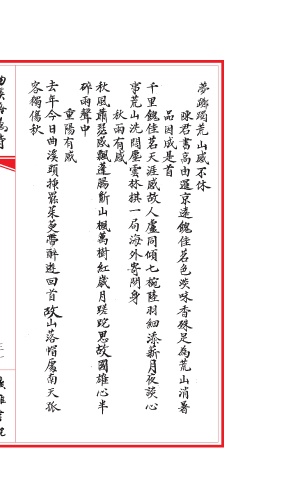 夢躑躅荒山感不休
陳君書高由運京遠餽佳茗色淡味香殊足為荒山消暑
品因成是首
千里餽佳茗天涯感故人盧同傾七椀陸羽細添薪月夜談心
事荒山洗悶塵雲林棋一局海外寄閒身
秋雨有感
秋風蕭瑟感飄蓬腸斷山楓萬樹紅歲月蹉跎思故國雄心半
碎雨聲中
重陽有感
去年今日曲溪頭揷罷茱萸帶醉遊回首故山落帽處南天孤
客獨傷秋